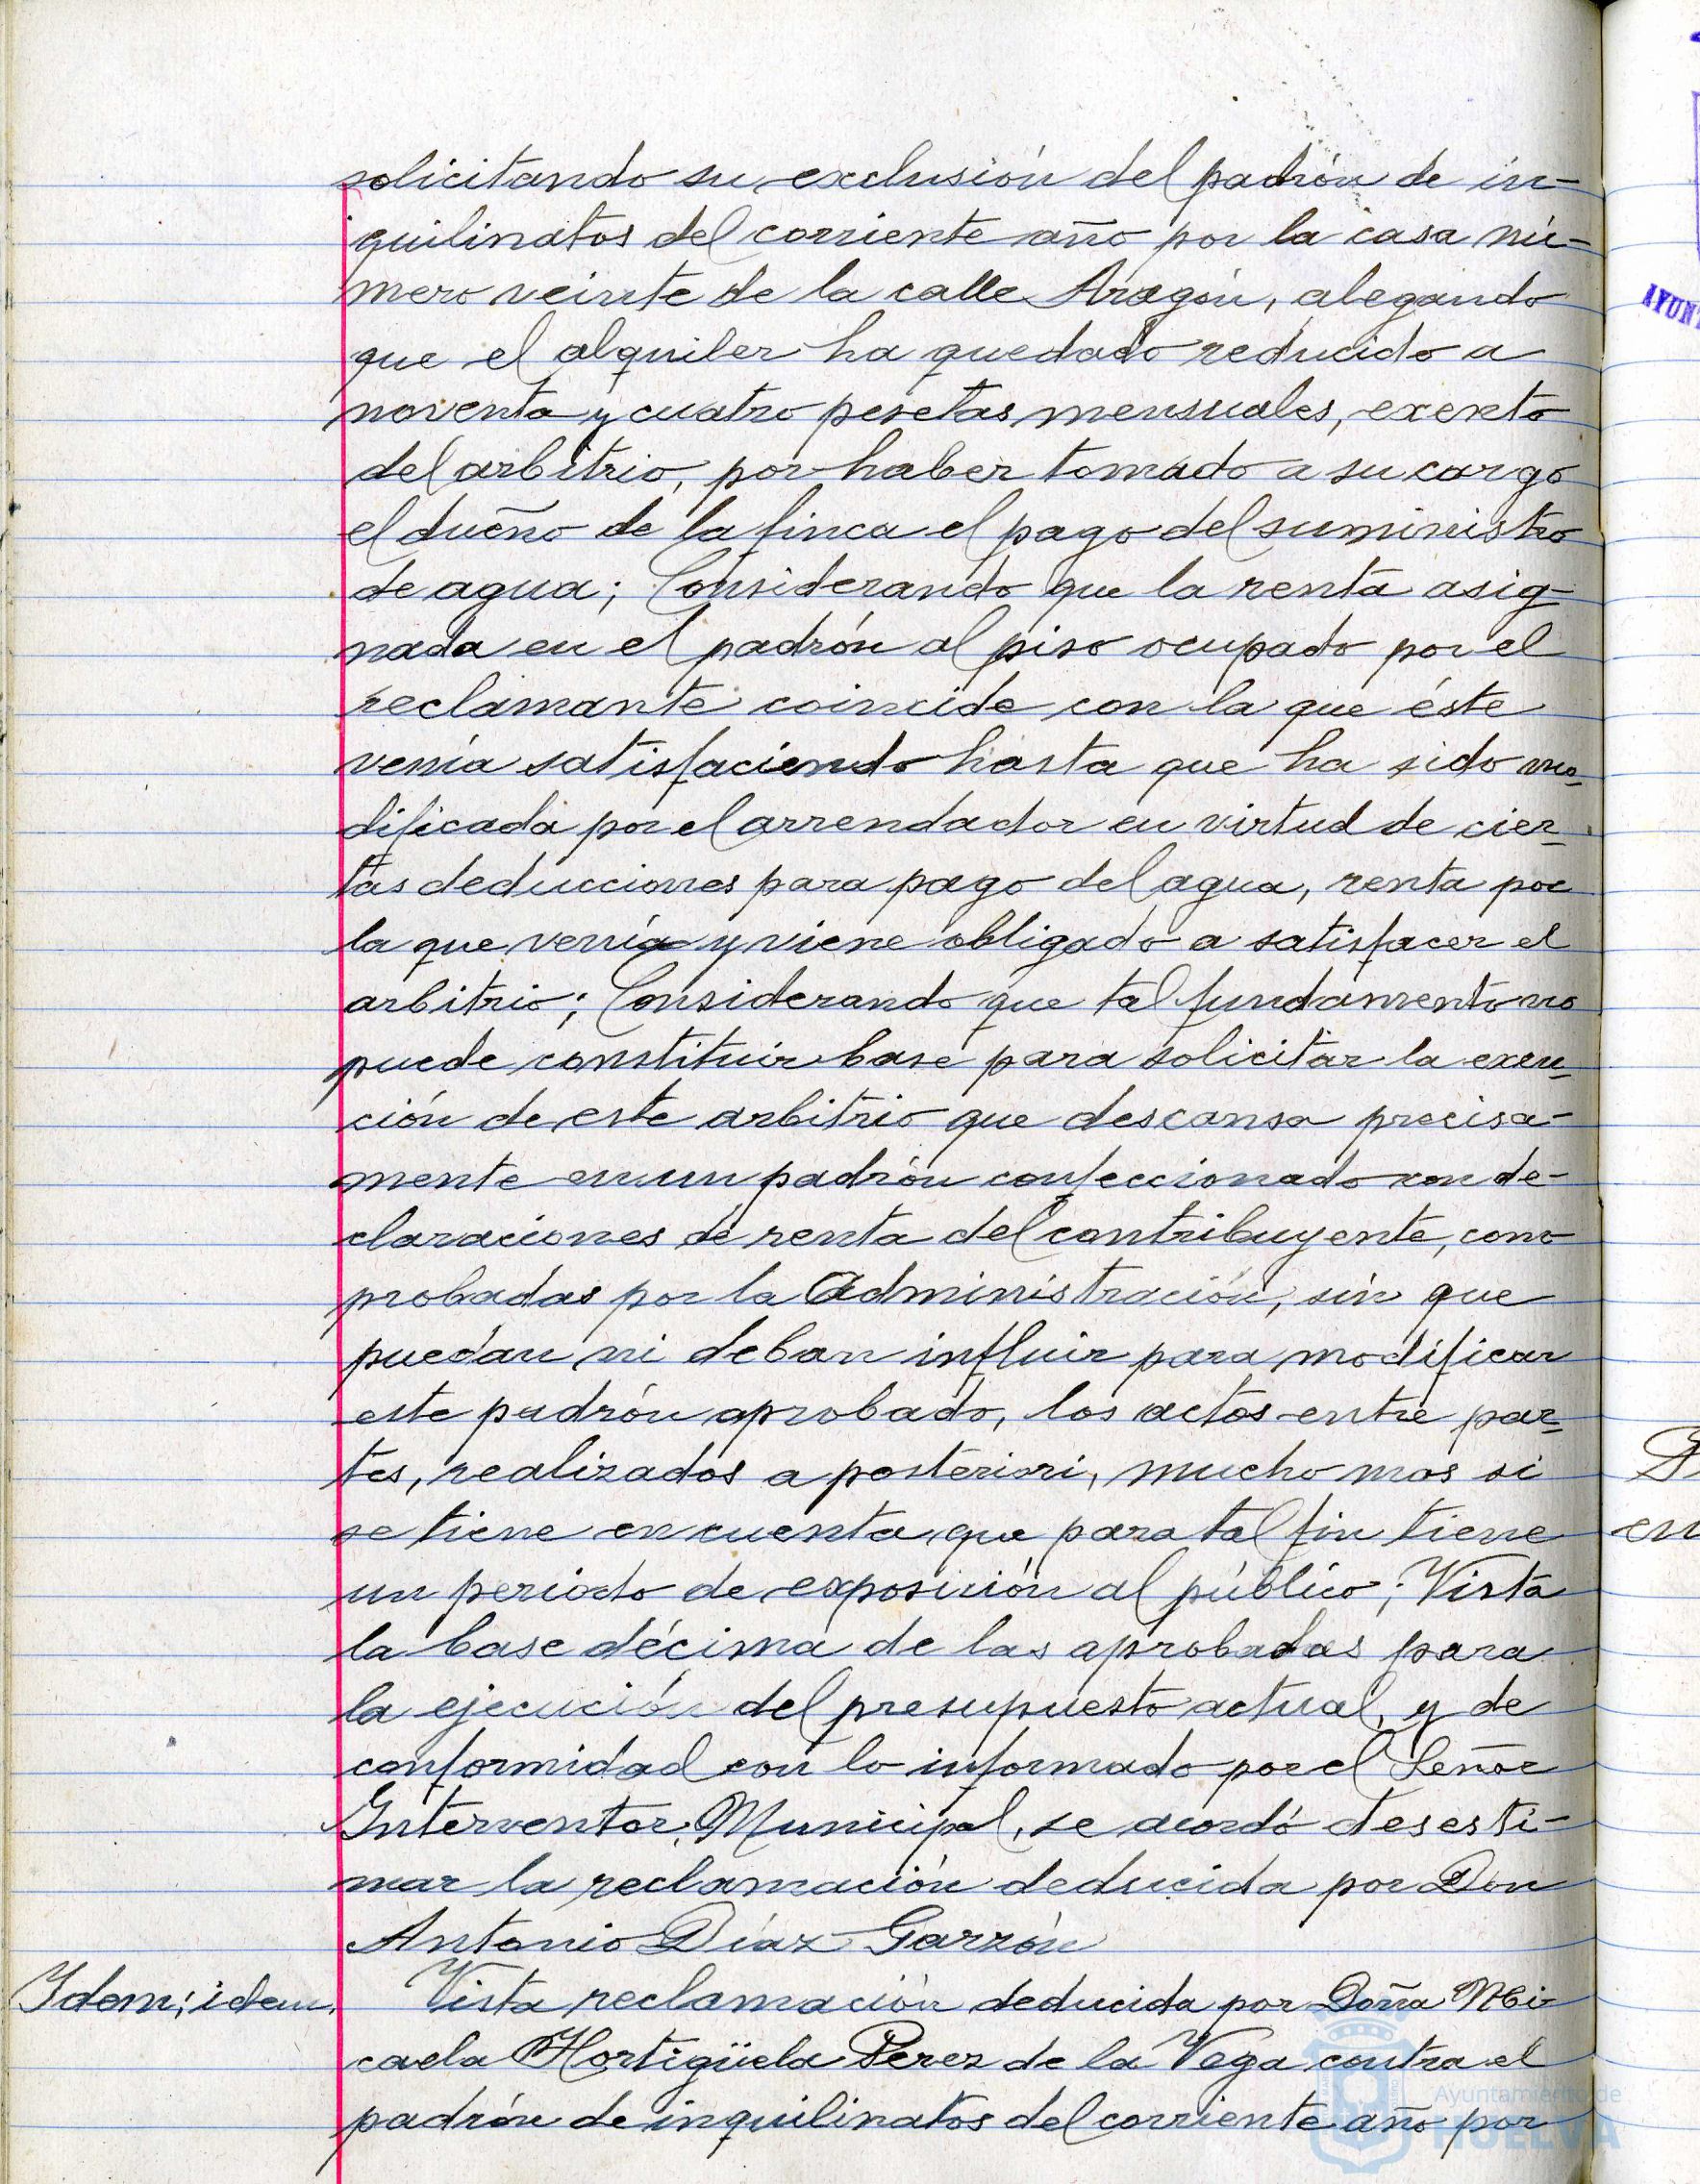 solicitando su exclusión del padrón de in-
quilinatos del corriente año por la casa nú-
mero veinte de la calle Aragón, alegando
que el alquiler ha quedado reducido a
noventa y cuatro pesetas mensuales, exento
del arbitrio, por haber tomado a su cargo
el dueño de la finca el pago del suministro
de agua; Considerando que la renta asig-
nada en el padrón al piso ocupado por el
reclamante coincide con la que éste
venía satisfaciendo hasta que ha sido mo-
dificada por el arrendador en virtud de cier-
tas deducciones para pago del agua, renta por
la que venía y viene obligado a satisfacer el
arbitrio; Considerando que tal fundamento no
puede constituir base para solicitar la exen-
ción de este arbitrio que descansa precisa-
mente en un padrón confeccionado con de-
claraciones de renta del contribuyente, com-
probadas por la Administración, sin que
puedan ni deban influir para modificar
este padrón aprobado, los actos entre par-
tes, realizados a posteriori, mucho mas si
se tiene en cuenta que para tal fin tiene
un periodo de exposición al público; Vista
la base décima de las aprobadas para
la ejecución del presupuesto actual, y de
conformidad con lo informado por el Señor
Interventor Municipal, se acordó desesti-
mar la reclamación deducida por Don
Antonio Díaz Garzón
Idem; idem.
Vista reclamación deducida por Doña Mi-
caela Hortigüela Perez de la Vega contra el
padrón de inquilinatos del corriente año por
AYUNT
en
Ayuntamiento de
HUELVA